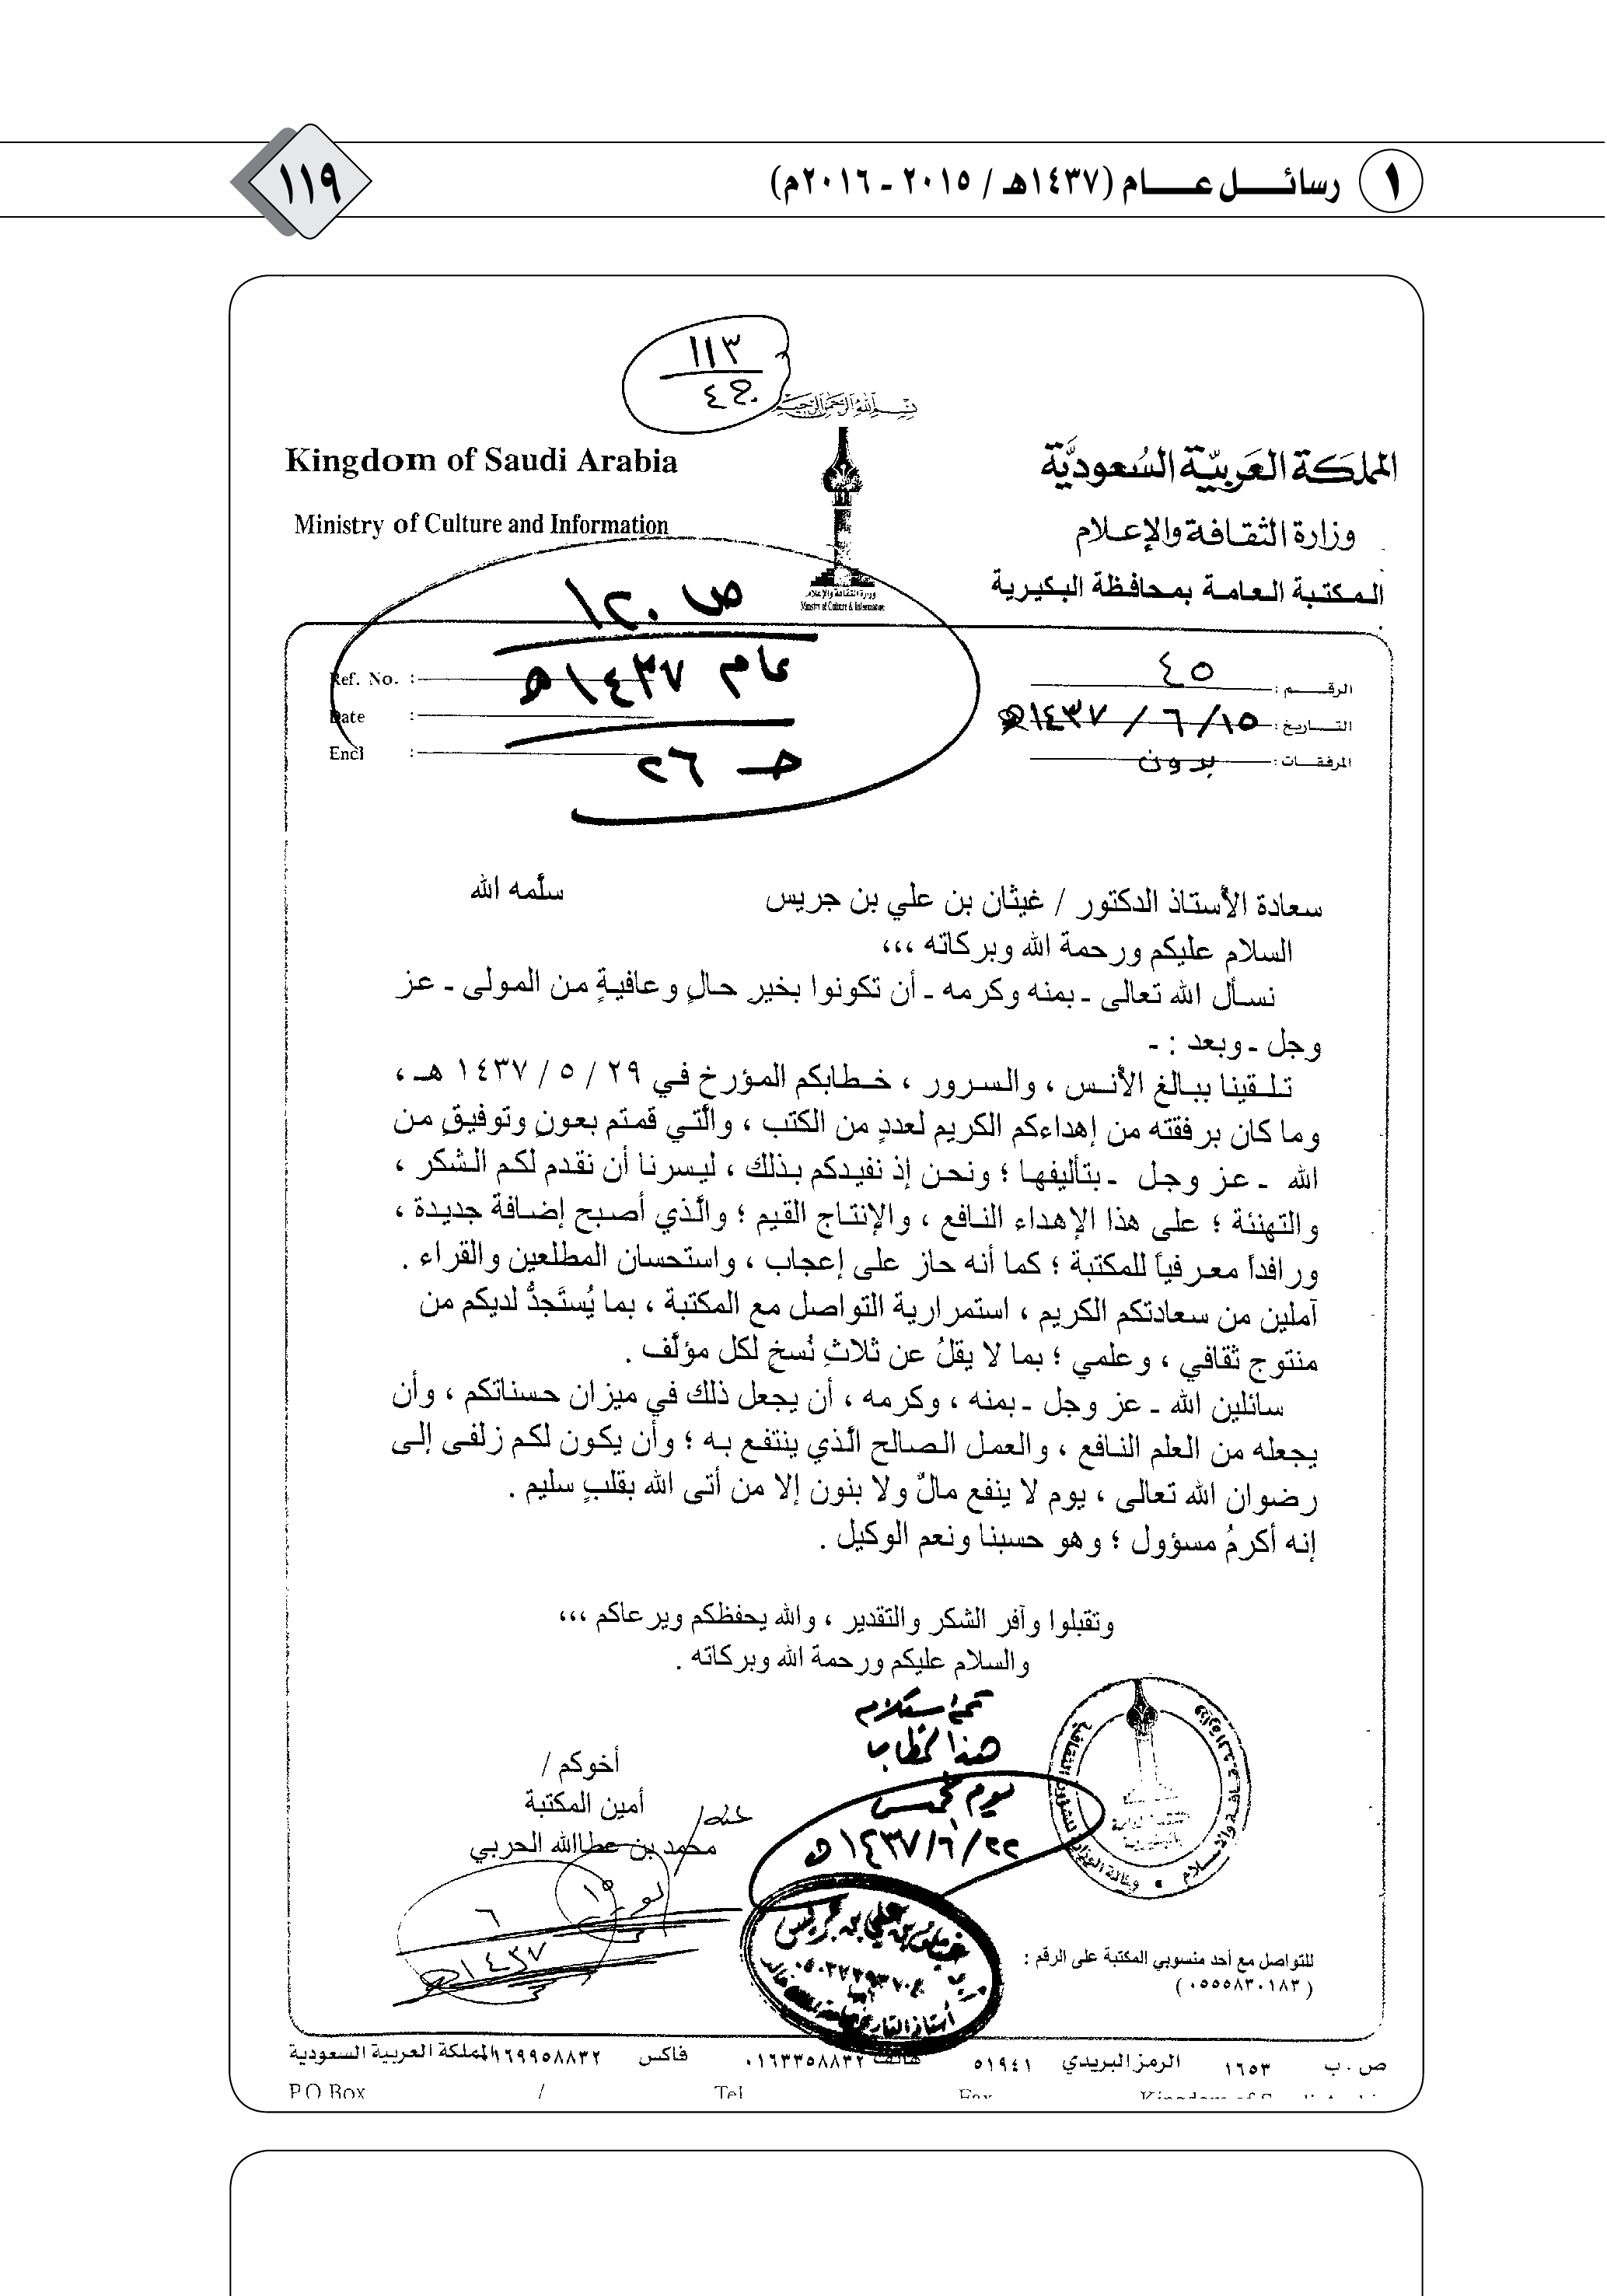 ١ رسائل عام (١٤٣٧هـ / ٢٠١٥ - ٢٠١٦م)
١١٩
١١٣
بسم الله الرحمن الرحيم
Kingdom of Saudi Arabia
المملكة العربية السعودية
Ministry of Culture and Information
وزارة الثقافة والإعلام
المكتبة العامة بمحافظة البكيرية
وزارة الثقافة والإعلام
Ministry of Culture & Information
ص ١٢٠
عام ١٤٣٧هـ
حـ ٢٦
الرقم : ٤٥
التاريخ : ١٥ / ٦ / ١٤٣٧هـ
المرفقات : بدون
Ref. No. :
Date :
Encl :
سعادة الأستاذ الدكتور / غيثان بن علي بن جريس سلَّمه الله
السلام عليكم ورحمة الله وبركاته ،،،
نسأل الله تعالى ـ بمنه وكرمه ـ أن تكونوا بخيرِ حالٍ وعافيةٍ من المولى ـ عز
وجل ـ وبعد : ـ
تلقينا ببالغ الأنس ، والسرور ، خطابكم المؤرخ في ٢٩ / ٥ / ١٤٣٧ هـ ،
وما كان برفقته من إهداءكم الكريم لعددٍ من الكتب ، والَّتي قمتم بعونِ وتوفيقِ من
الله ـ عز وجل ـ بتأليفها ؛ ونحن إذ نفيدكم بذلك ، ليسرنا أن نقدم لكم الشكر ،
والتهنئة ؛ على هذا الإهداء النافع ، والإنتاج القيم ؛ والَّذي أصبح إضافة جديدة ،
ورافداً معرفياً للمكتبة ؛ كما أنه حاز على إعجاب ، واستحسان المطلعين والقراء .
آملين من سعادتكم الكريم ، استمرارية التواصل مع المكتبة ، بما يُستَجدُّ لديكم من
منتوج ثقافي ، وعلمي ؛ بما لا يقلُ عن ثلاثِ نُسخ لكل مؤلَّف .
سائلين الله ـ عز وجل ـ بمنه ، وكرمه ، أن يجعل ذلك في ميزان حسناتكم ، وأن
يجعله من العلم النافع ، والعمل الصالح الَّذي ينتفع به ؛ وأن يكون لكم زلفى إلى
رضوان الله تعالى ، يوم لا ينفع مالٌ ولا بنون إلا من أتى الله بقلبٍ سليم .
إنه أكرمُ مسؤول ؛ وهو حسبنا ونعم الوكيل .
وتقبلوا وآفر الشكر والتقدير ، والله يحفظكم ويرعاكم ،،،
والسلام عليكم ورحمة الله وبركاته .
تم استلام
هذا الخطاب
يوم الخميس
٢٢/٦/١٤٣٧هـ
أخوكم /
أمين المكتبة
محمد بن عطاالله الحربي
عنه/
١٥
٦
١٤٣٧هـ
وزارة الثقافة والإعلام
وكالة الوزارة للشؤون الثقافية
غيثان بن علي بن جريس
للتواصل مع أحد منسوبي المكتبة على الرقم :
( ٠٥٥٥٨٣٠١٨٣ )
ص . ب ١٦٥٣ الرمز البريدي ٥١٩٤١ هاتف ٠١٦٣٣٥٨٨٣٢ فاكس ١٦٩٩٥٨٨٣٢ المملكة العربية السعودية
P.O Box / Tel Fax